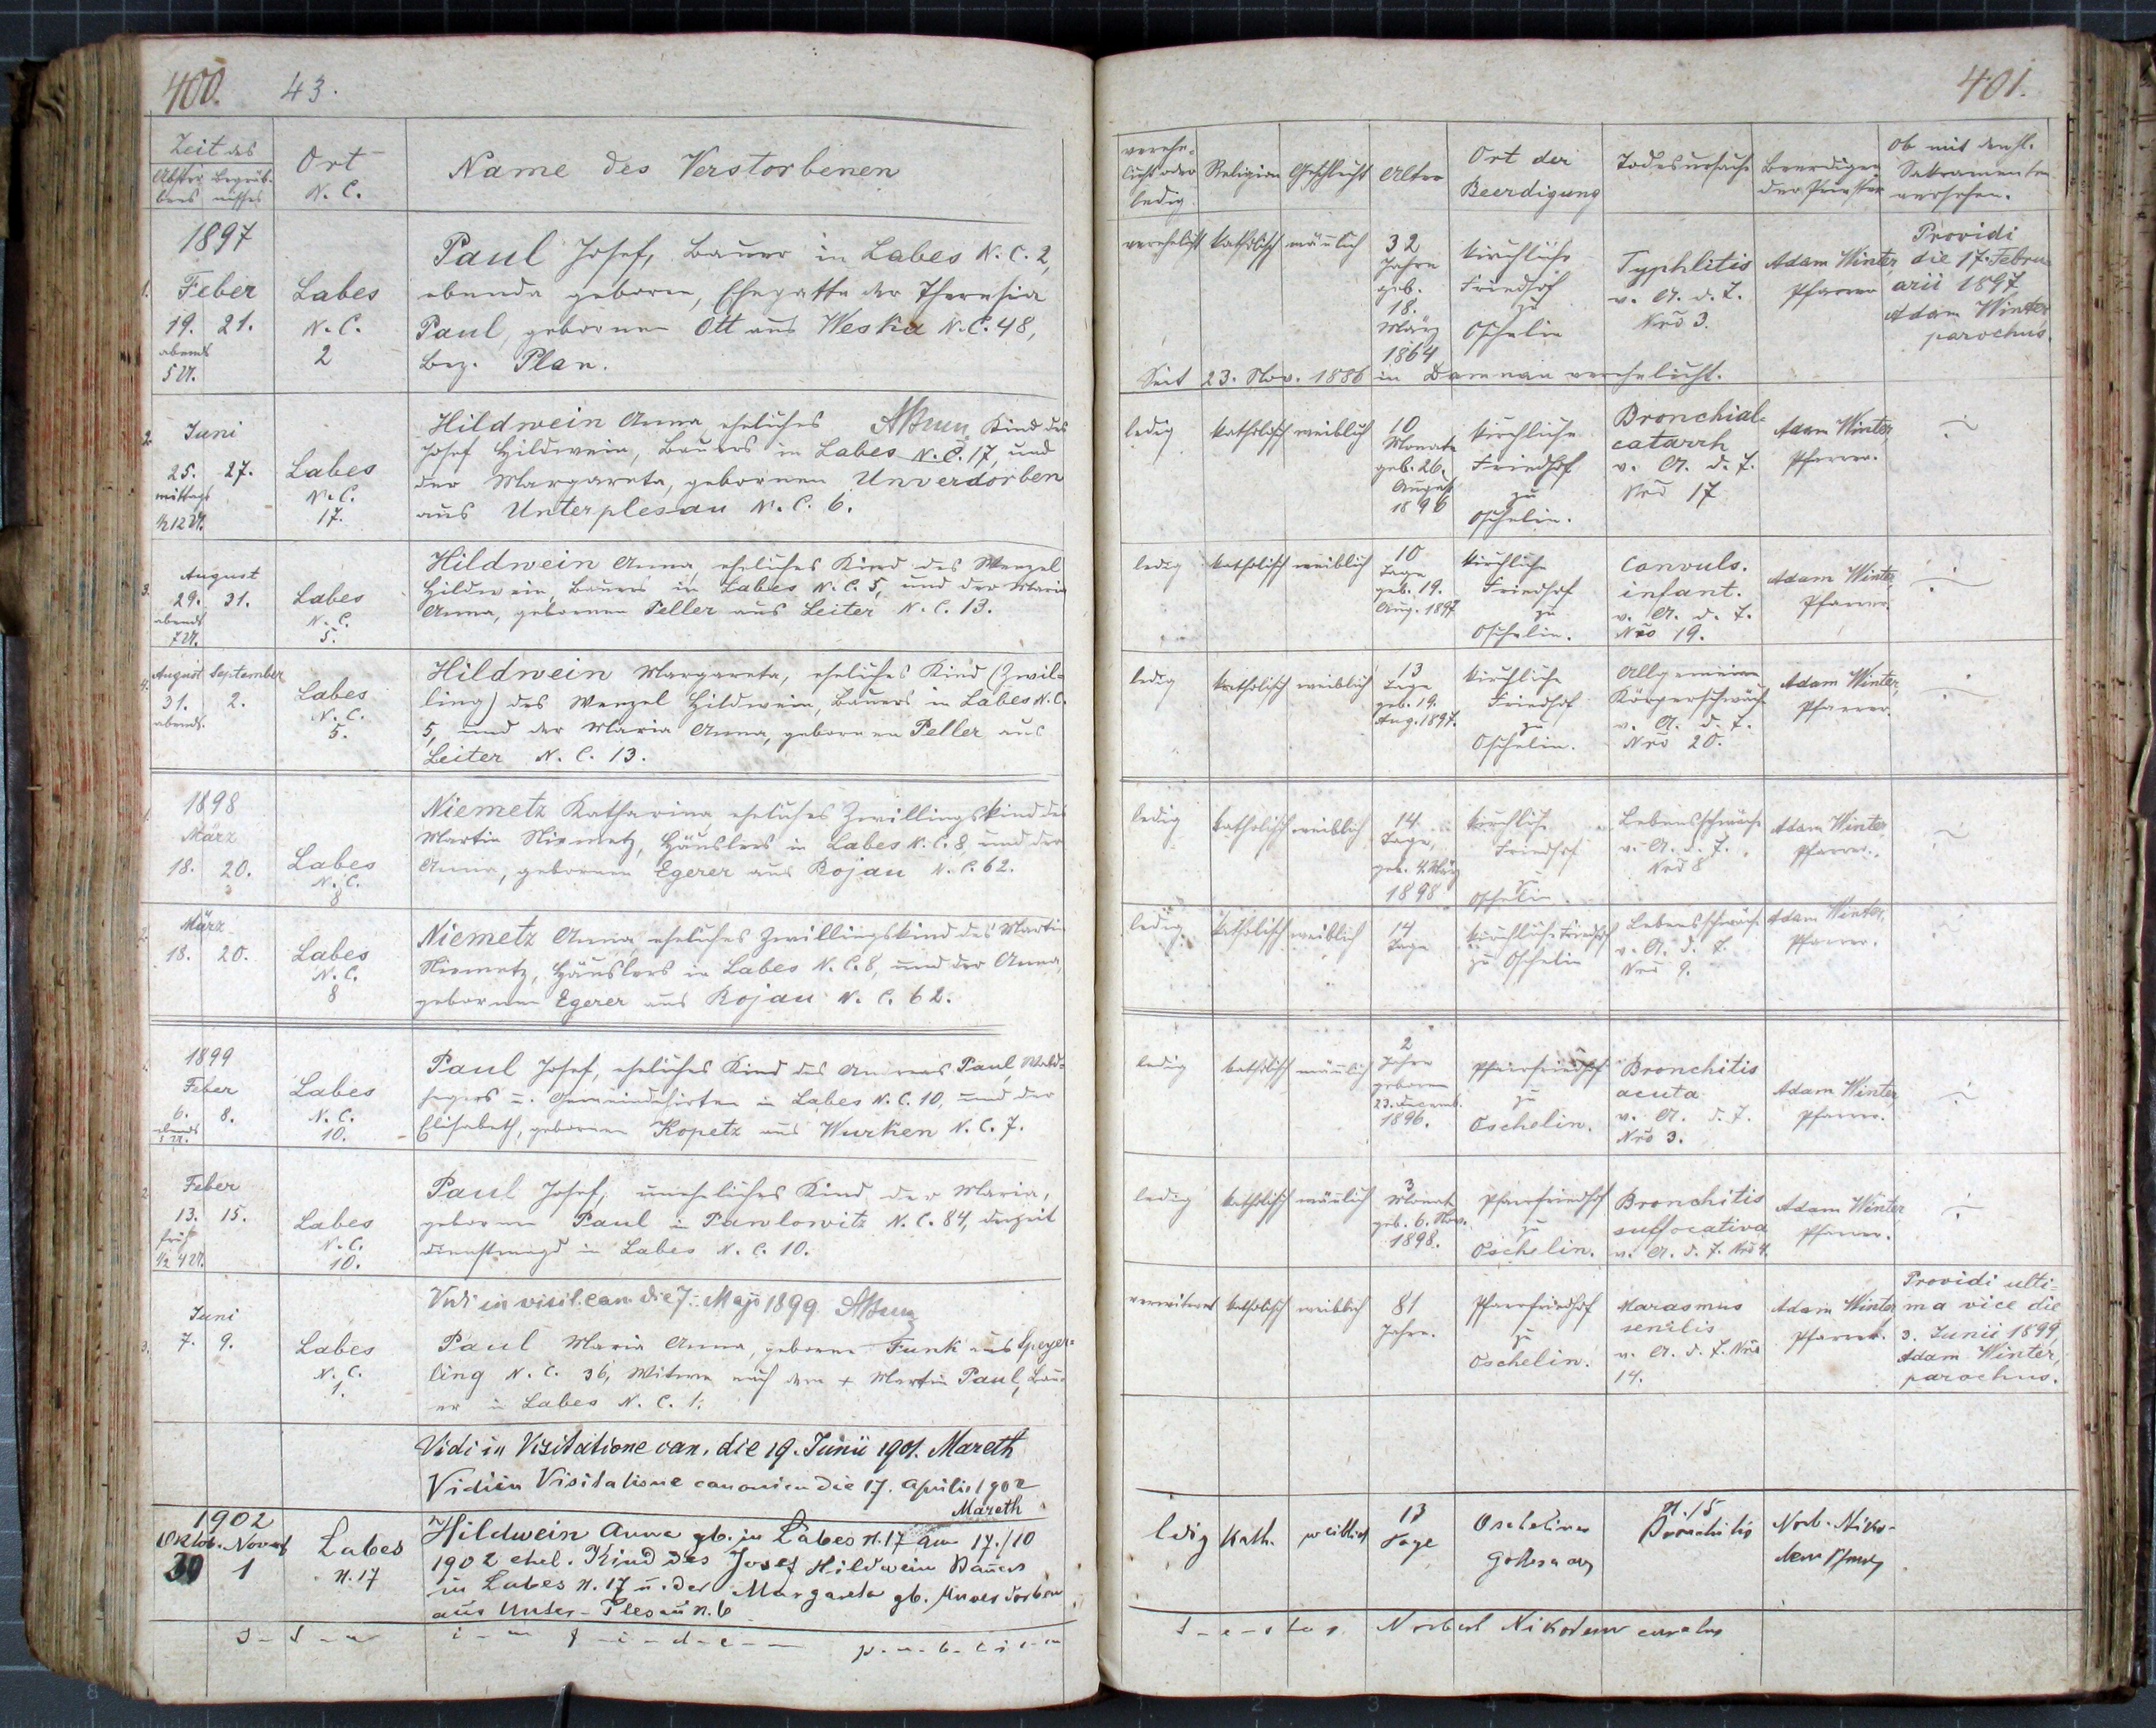 400. 43.
Zeit des
Abster- Begräb-
bens nisses
Ort
N. C.
Name des Verstorbenen
1897
1. Feber
19. 21.
abends
5 U.
Labes
N. C.
2
Paul Josef, Bauer in Labes N. C. 2,
ebenda geboren, Ehegatte der Theresia
Paul, gebornen Ott aus Weska N. C. 48,
Bez. Plan.
2. Juni
25. 27.
mittags
½12 U.
Labes
N. C.
17.
Hildwein Anna, eheliches Kind des
Josef Hildwein, Bauers in Labes N. C. 17, und
der Margareta, gebornen Unverdorben
aus Unterplesau N. C. 6.
3. August
29. 31.
abends
7 U.
Labes
N. C.
5.
Hildwein Anna, eheliches Kind des Wenzel
Hildwein, Bauers in Labes N. C. 5, und der Maria
Anna, gebornen Peller aus Leiter N. C. 13.
4. August September
31. 2.
abends.
Labes
N. C.
5.
Hildwein Margareta, eheliches Kind (Zwil-
ling) des Wenzel Hildwein, Bauers in Labes N. C.
5, und der Maria Anna, gebornen Peller aus
Leiter N. C. 13.
1898
1. März
18. 20.
Labes
N. C.
8
Niemetz Katharina eheliches Zwillingskind des
Martin Niemetz, Häuslers in Labes N. C. 8, und der
Anna, gebornen Egerer aus Kojau N. C. 62.
2. März
18. 20.
Labes
N. C.
8
Niemetz Anna, eheliches Zwillingskind des Martin
Niemetz, Häuslers in Labes N. C. 8, und der Anna,
gebornen Egerer aus Kojau N. C. 62.
1899
Feber
6. 8.
abends
Labes
N. C.
10.
Paul Josef, eheliches Kind des Andreas Paul, Wald-
hegers u. Gemeindehirten in Labes N. C. 10, und der
Elisabeth, gebornen Kopetz aus Wurken N. C. 7.
2. Feber
13. 15.
früh
½ 4 U.
Labes
N. C.
10.
Paul Josef, uneheliches Kind der Maria,
gebornen Paul in Pawlowitz N. C. 84, derzeit
Dienstmagd in Labes N. C. 10.
Vidi in visit. can. die 7. Maji 1899.
3. Juni
7. 9.
Labes
N. C.
1.
Paul Maria Anna, geborne Funk aus Speyer-
ling N. C. 36, Witwe nach dem + Martin Paul, Bau-
er in Labes N. C. 1.
Vidi in Visitatione can. die 19. Junii 1901. Mareth
Vidi in Visitatione canonica die 17. Aprilis 1902
Mareth
1902
Oktob. Novemb
30 1
Labes
N. 17
Hildwein Anna gb. in Labes N. 17 am 17./10
1902 ehel. Kind des Josef Hildwein Bauers
in Labes N. 17 u. der Margareta gb. Unverdorben
aus Unter-Plesau N. 6
i - n f - i - d - e - m p - u - b - l - i - c - a - m
401.
verehe-
licht oder
ledig
Religion Geschlecht Alter
Ort der
Beerdigung
Todesursache
Beerdigen-
der Priester
Ob mit den hl.
Sakramenten
versehen.
verehelicht katholisch männlich
32
Jahre
geb.
18.
März
1864
kirchliche
Friedhof
zu
Oschelin
Typhlitis
v. A. d. T.
Nrō 3.
Adam Winter,
Pfarrer
Providi
die 17. Febru-
arii 1897
Adam Winter
parochus.
Seit 23. Nov. 1886 in Damnau verehelicht.
ledig katholisch weiblich
10
Monate
geb. 26.
August
1896
kirchliche
Friedhof
zu
Oschelin.
Bronchial-
catarrh
v. A. d. T.
Nrō 17
Adam Winter,
Pfarrer.
ledig katholisch weiblich
10
Tage
geb. 19.
Aug. 1897
kirchliche
Friedhof
zu
Oschelin.
Convuls.
infant.
v. A. d. T.
Nrō 19.
Adam Winter,
Pfarrer.
ledig katholisch weiblich
13
Tage
geb. 19.
Aug. 1897.
kirchliche
Friedhof
zu
Oschelin.
Allgemeine
Körperschwäche
v. A. d. T.
Nrō 20.
Adam Winter,
Pfarrer.
ledig katholisch weiblich
14
Tage,
geb. 4. März
1898
kirchliche
Friedhof
zu
Oschelin.
Lebensschwäche
v. A. d. T.
Nrō 8
Adam Winter,
Pfarrer.
ledig. katholisch weiblich
14
Tage
kirchliche Friedhof
zu Oschelin
Lebensschwäche
v. A. d. T.
Nrō 9.
Adam Winter,
Pfarrer.
ledig katholisch männlich
2
Jahre
geboren
23. Decemb.
1896.
Pfarrfriedhof
zu
Oschelin.
Bronchitis
acuta
v. A. d. T.
Nrō 3.
Adam Winter,
Pfarrer.
ledig katholisch männlich
3
Monat
geb. 6. Nov.
1898.
Pfarrfriedhof
zu
Oschelin.
Bronchitis
suffocativa
v. A. d. T. Nrō 4.
Adam Winter
Pfarrer.
verwitwet katholisch weiblich
81
Jahre.
Pfarrfriedhof
zu
Oschelin.
Marasmus
senilis
v. A. d. T. Nrō
14.
Adam Winter
Pfarrer.
Providi ulti-
ma vice die
3. Junii 1899,
Adam Winter,
parochus.
ledig Kath. weiblich
13
Tage
Oscheliner
Gottesacker
N. 15
Bronchitis
Norb. Niko-
dem Pfarrer
t - e - s t o r Norbert Nikodem curatus